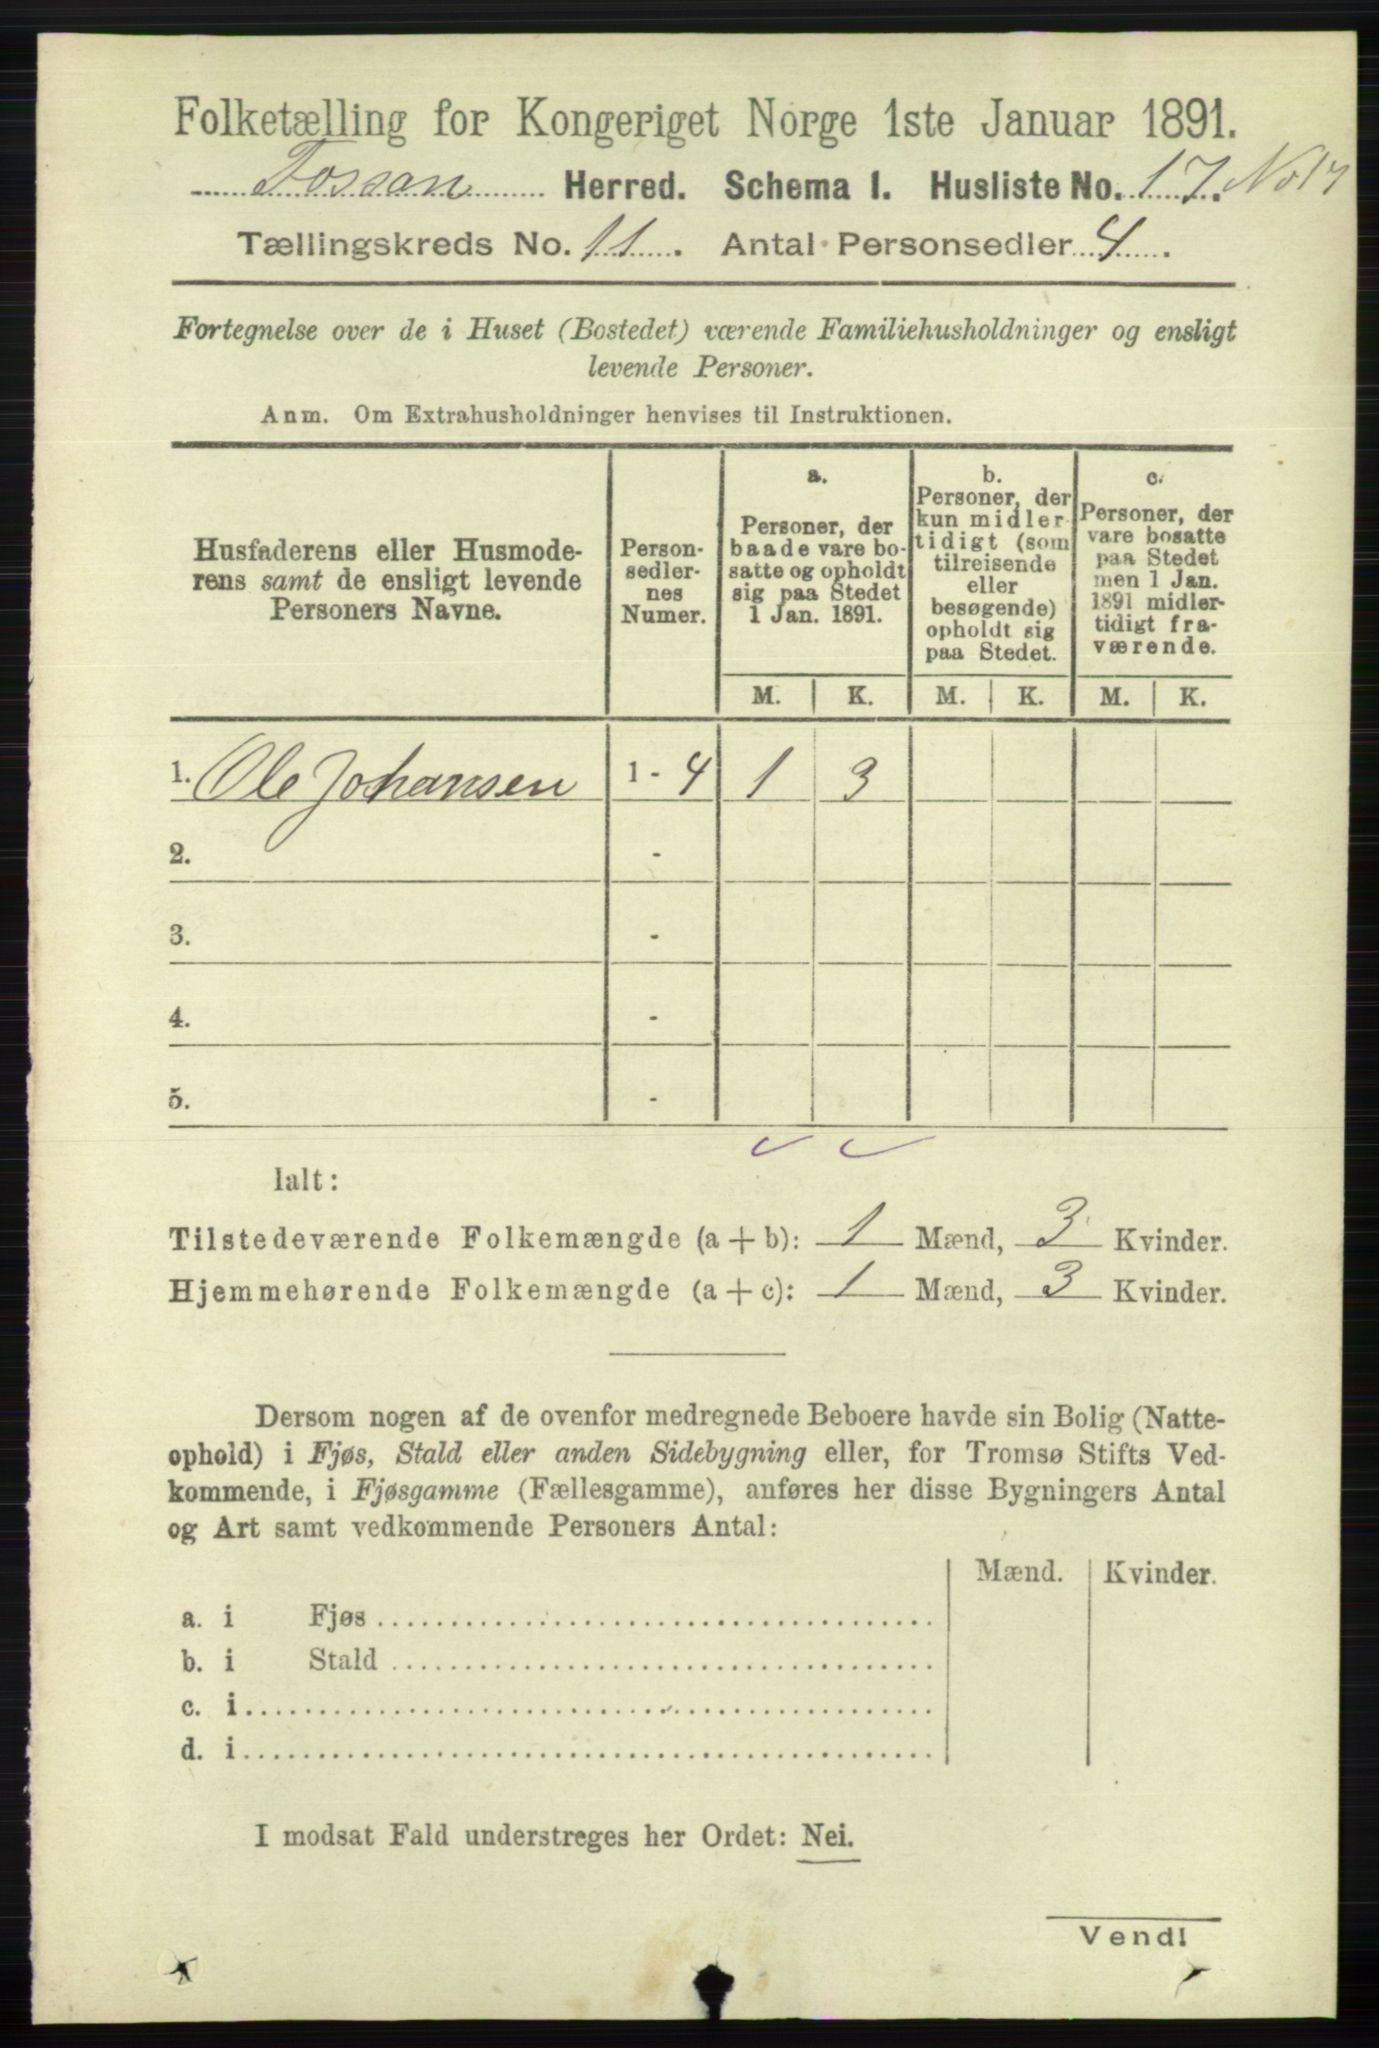 Folketælling for Kongeriget Norge 1ste Januar 1891.
Fossan Herred. Schema 1. Husliste No. 17. No 17
Tællingskreds No. 11. Antal Personsedler 4.
Fortegnelse over de i Huset (Bostedet) værende Familiehusholdninger og ensligt
levende Personer.
Anm. Om Extrahusholdninger henvises til Instruktionen.
Husfaderens eller Husmode-
rens samt de ensligt levende
Personers Navne.
Person-
sedler-
nes
Numer.
a.
Personer, der
baade vare bo-
satte og opholdt
sig paa Stedet
1 Jan. 1891.
b.
Personer, der
kun midler-
tidigt (som
tilreisende
eller
besøgende)
opholdt sig
paa Stedet.
c.
Personer, der
vare bosatte
paa Stedet
men 1 Jan.
1891 midler-
tidigt fra-
værende.
M. K. M. K. M. K.
1. Ole Johansen 1 - 4 1 3
2. -
3. -
4. -
5. -
Ialt:
Tilstedeværende Folkemængde (a + b): 1 Mænd, 3 Kvinder.
Hjemmehørende Folkemængde (a + c): 1 Mænd, 3 Kvinder.
Dersom nogen af de ovenfor medregnede Beboere havde sin Bolig (Natte-
ophold) i Fjøs, Stald eller anden Sidebygning eller, for Tromsø Stifts Ved-
kommende, i Fjøsgamme (Fællesgamme), anføres her disse Bygningers Antal
og Art samt vedkommende Personers Antal:
Mænd. Kvinder.
a. i Fjøs
b. i Stald
c. i
d. i
I modsat Fald understreges her Ordet: Nei.
Vend!